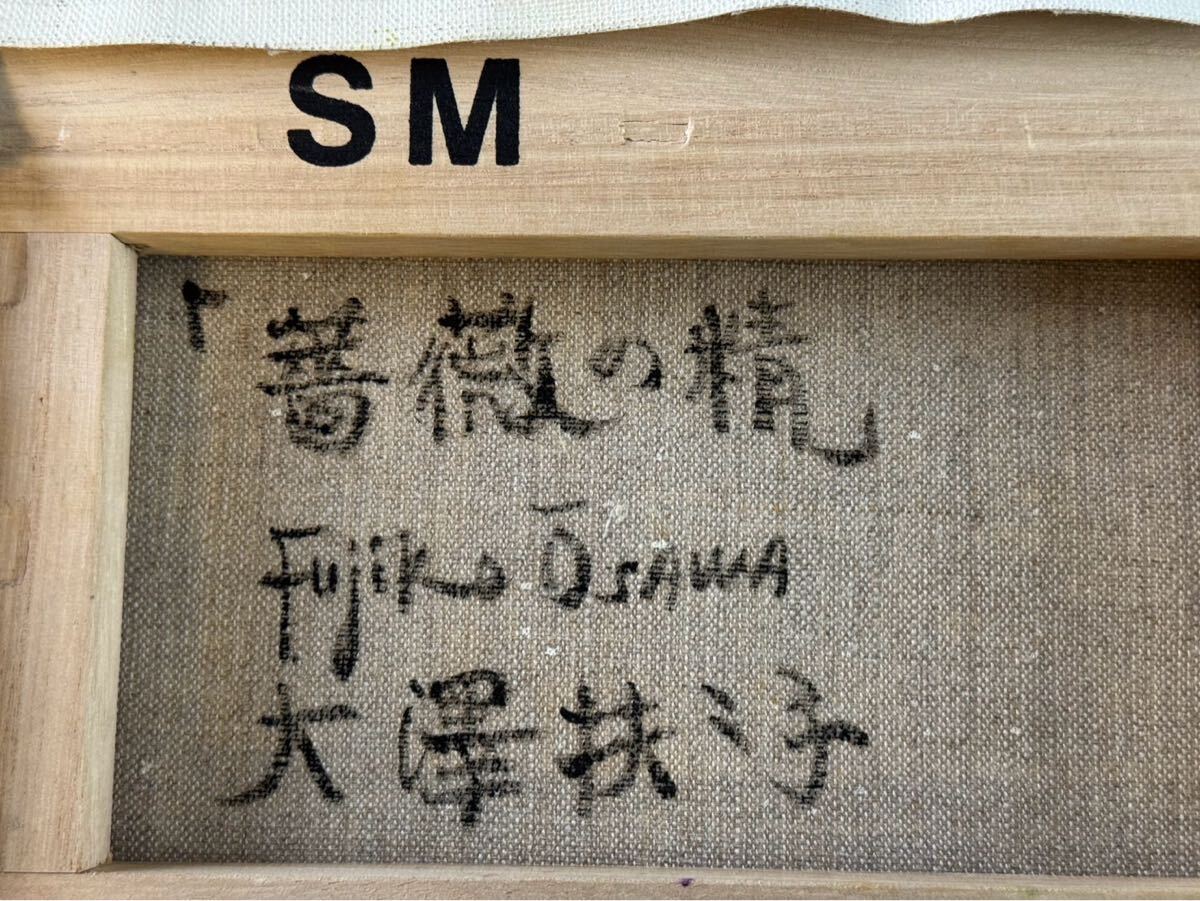 SM
「薔薇の精」
Fujiko ŌSAWA
大澤扶ミ子